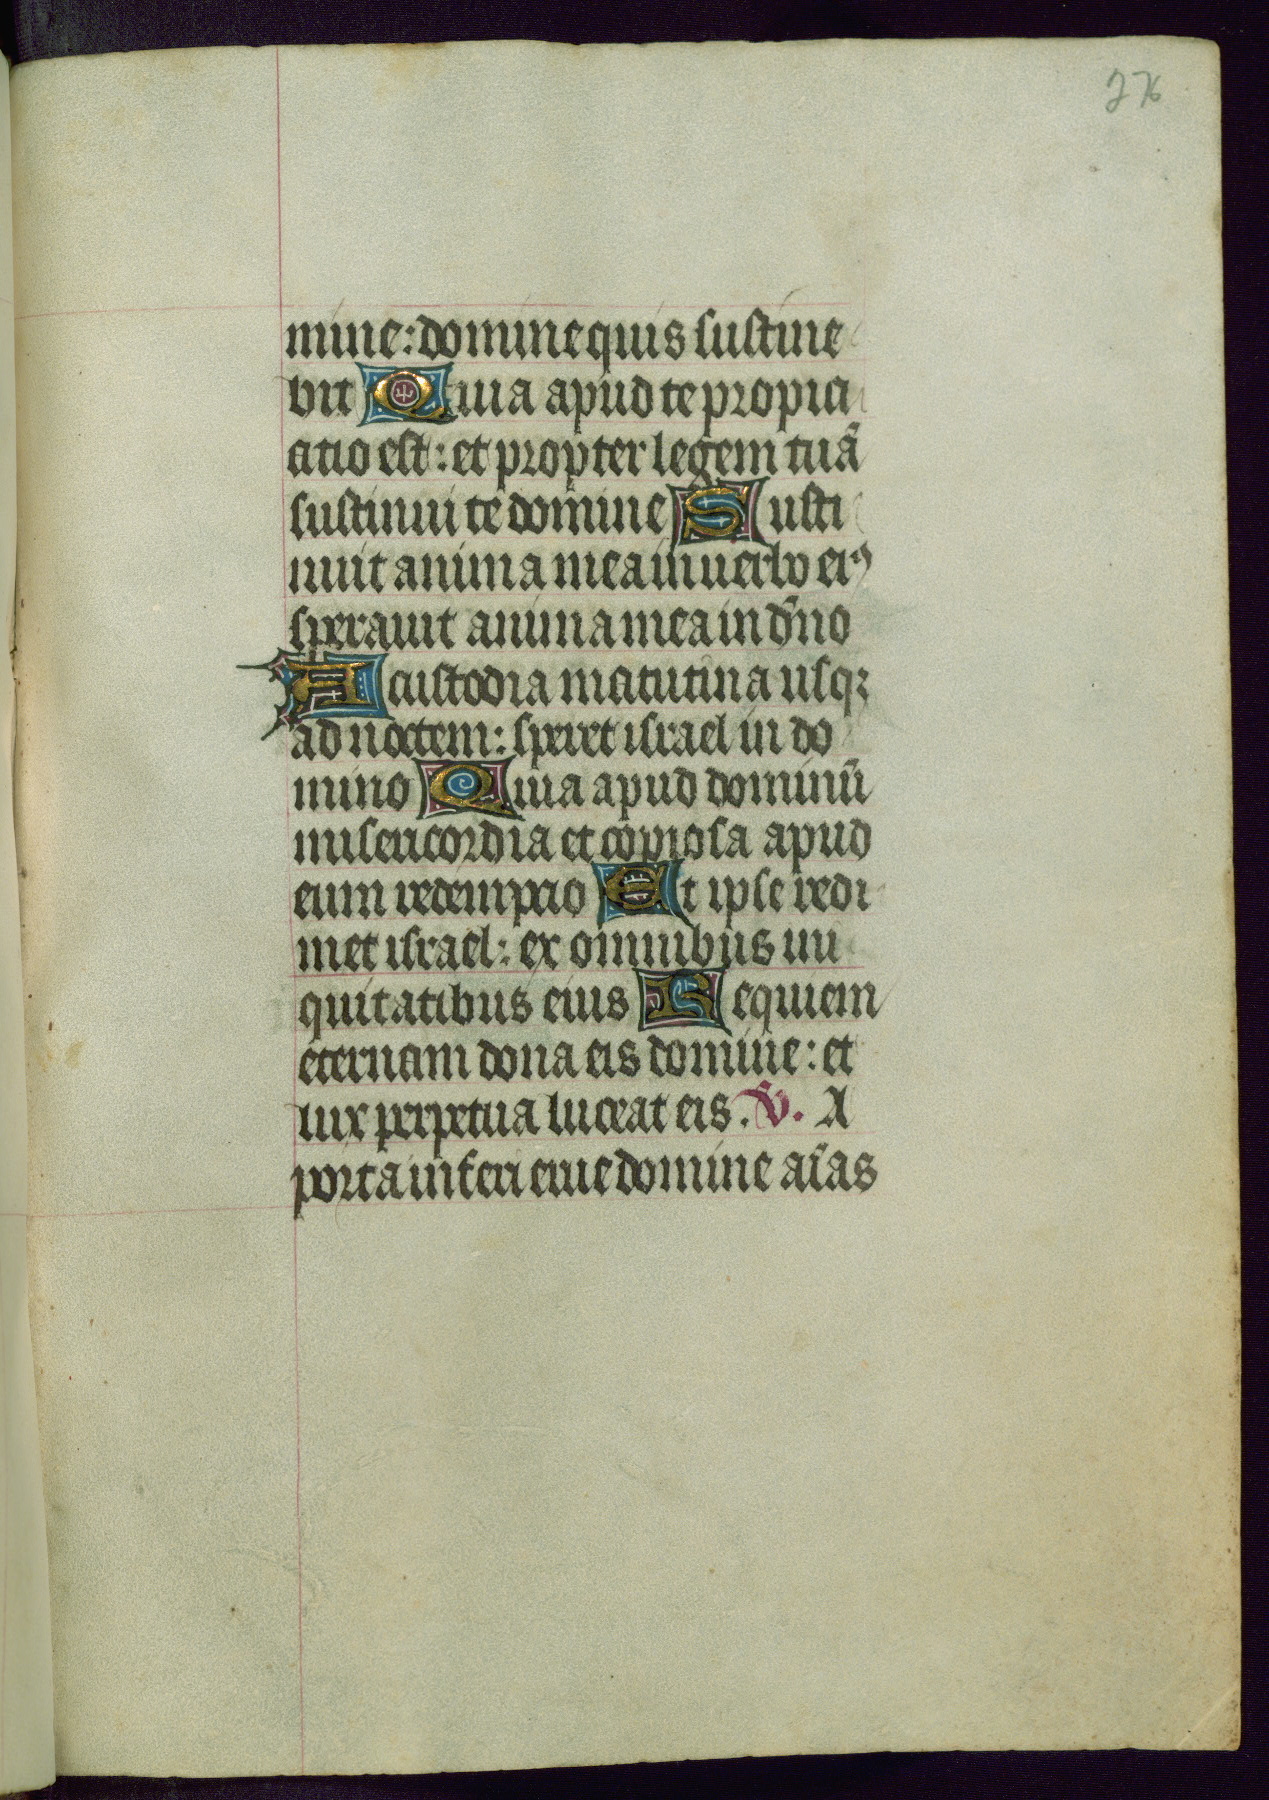 276
mine: domine quis sustine
bit Quia apud te propici
atio est: et propter legem tuā
sustinui te domine Susti
nuit anima mea in uerbo ei⁹
sperauit anima mea in dn̄o
A custodia matutina usqꝫ
ad noctem: speret israel in do
mino Quia apud dominū
misericordia et copiosa apud
eum redempcio Et ipse redi
met israel: ex omnibus ini
quitatibus eius Requiem
eternam dona eis domine: et
lux perpetua luceat eis. V̄. A
porta inferi erue domine aīas